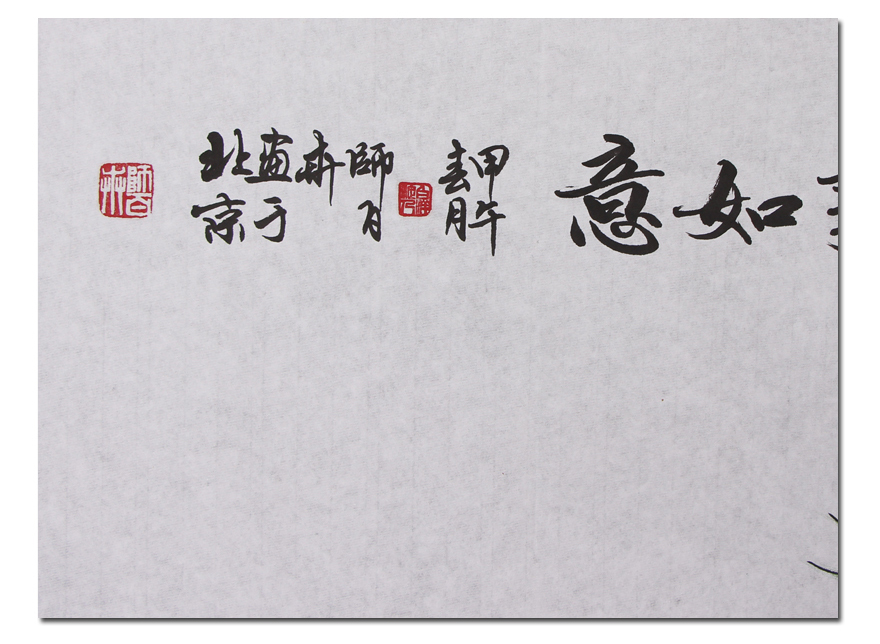 如意
甲午
春月
師
畫于
北京